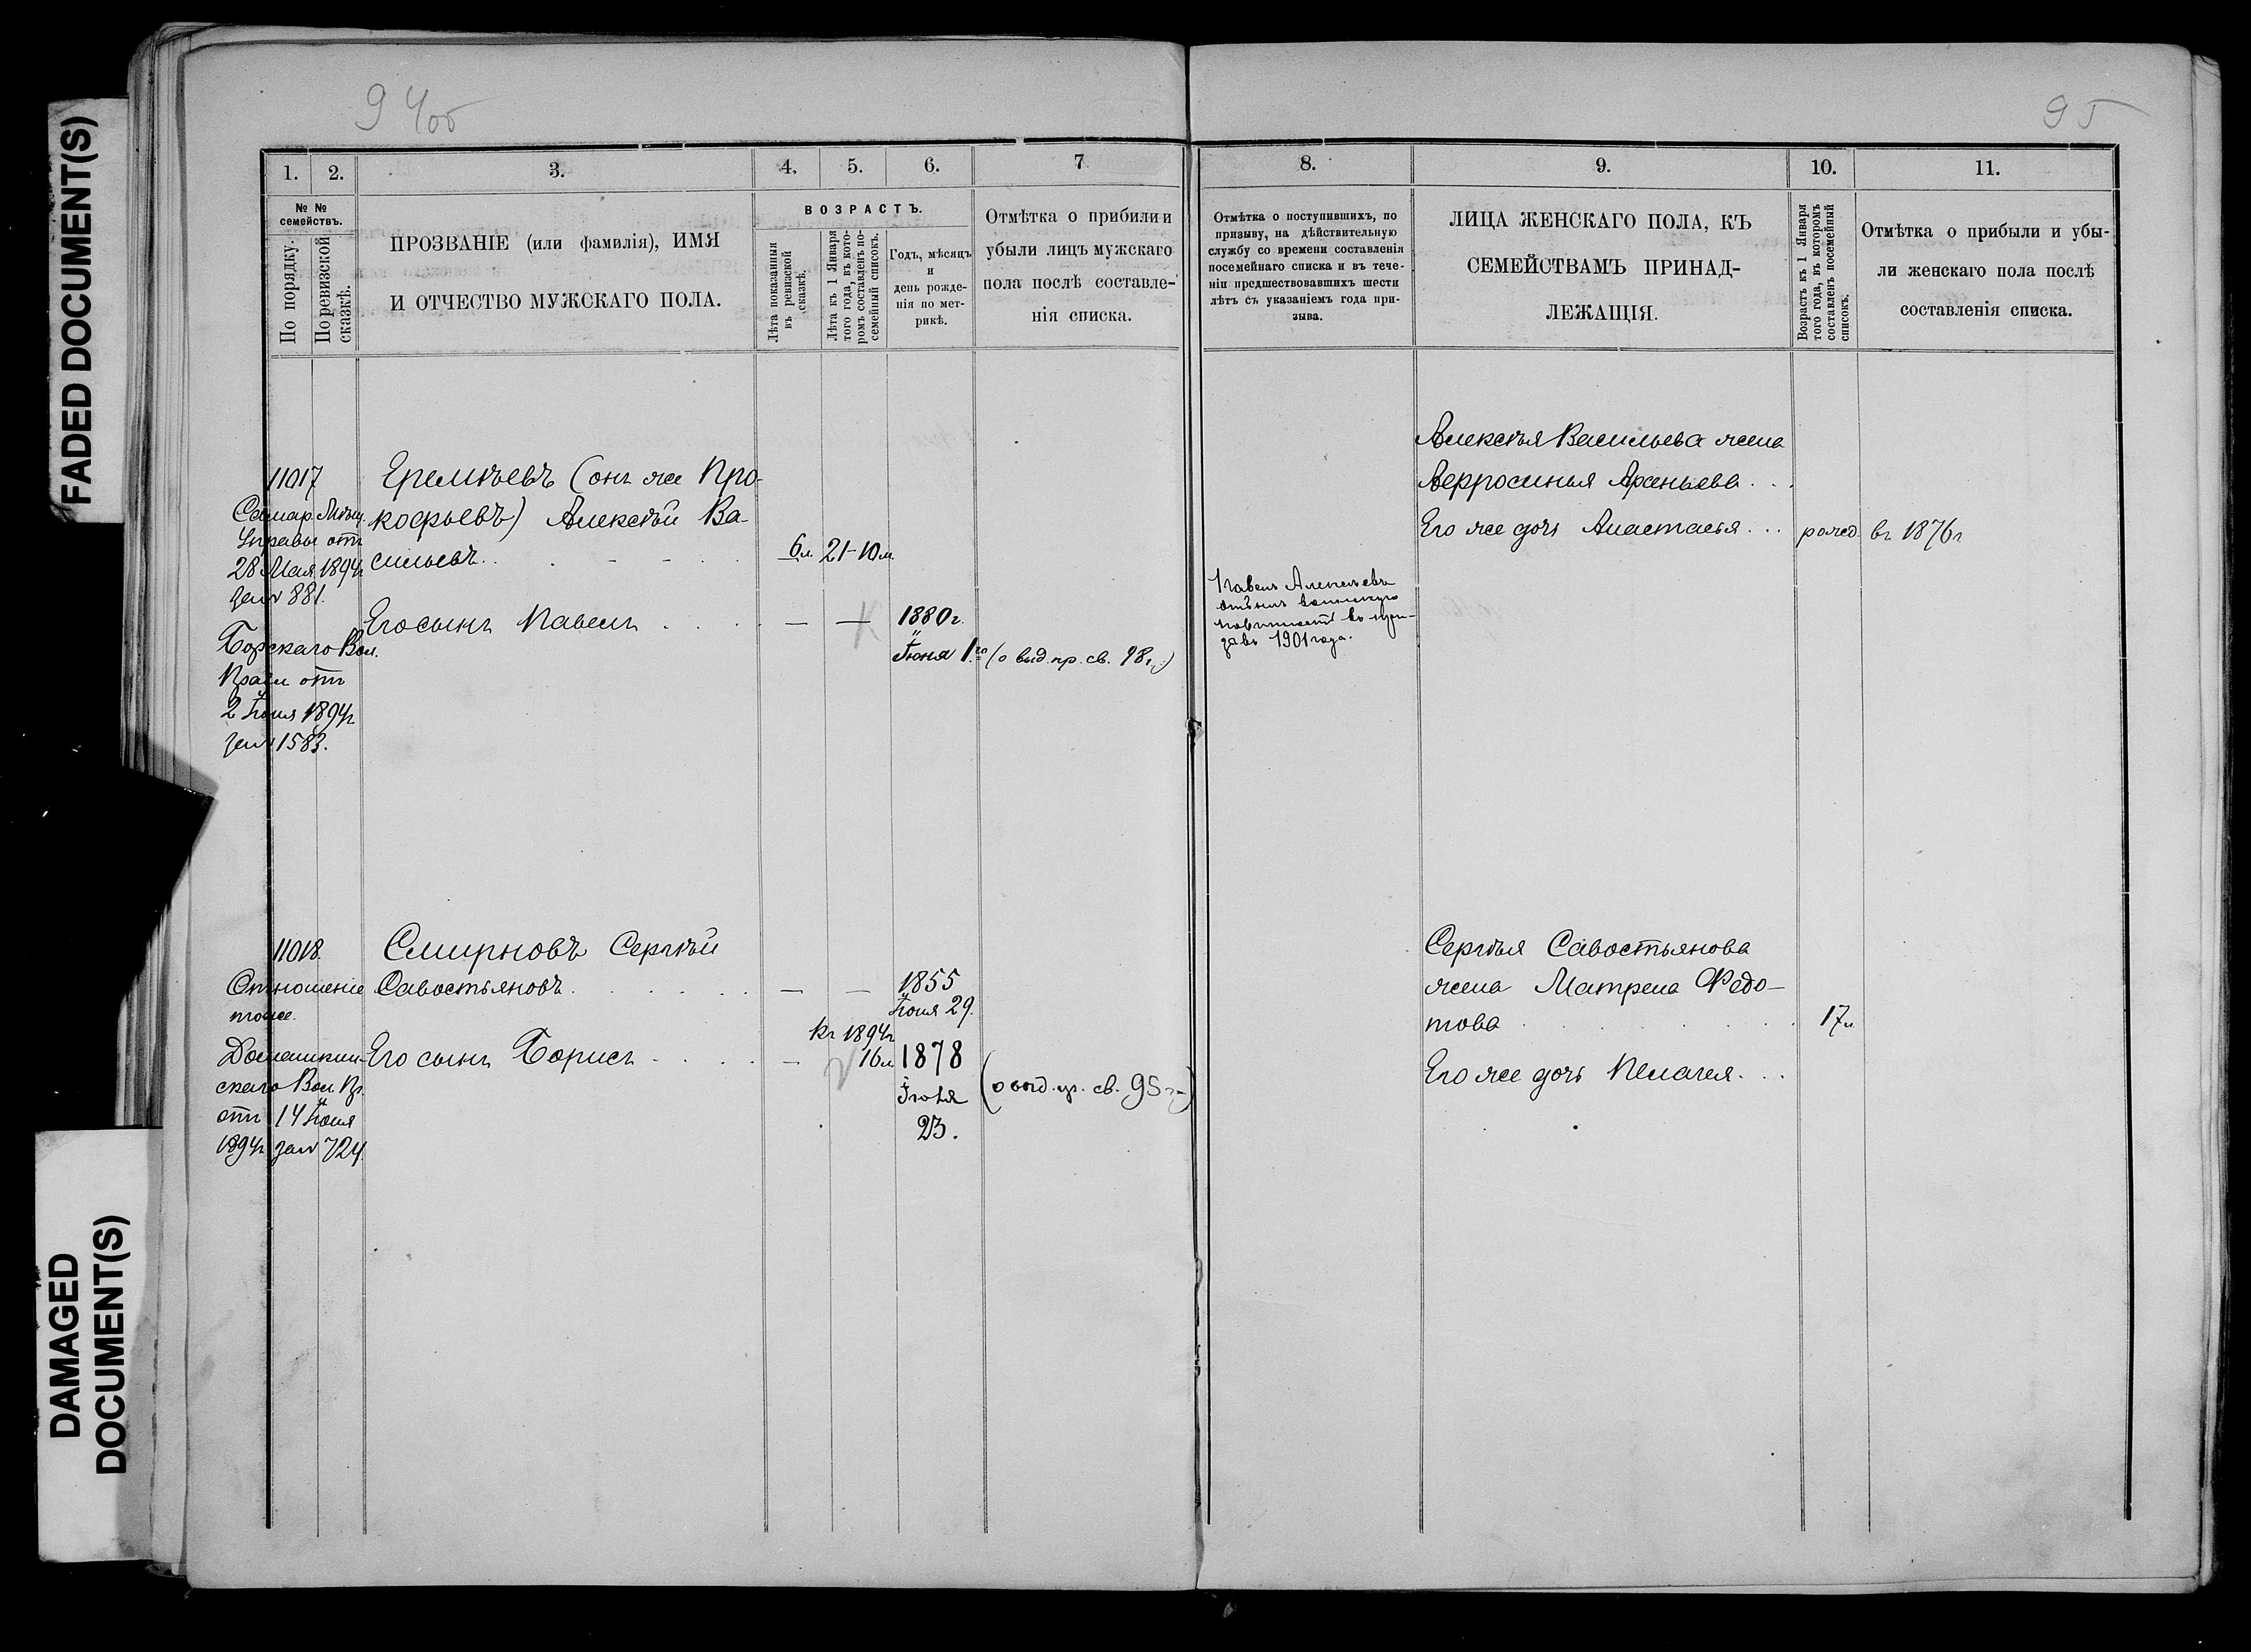 94 об
95
FADED DOCUMENT(S)
DAMAGED DOCUMENT(S)
1.
2.
3.
4.
5.
6.
7
№ №
семействъ.
По порядку.
По ревизской сказкѣ.
ПРОЗВАНІЕ (или фамилія), ИМЯ
И ОТЧЕСТВО МУЖСКАГО ПОЛА.
ВОЗРАСТЪ.
Лѣта показанныя
въ ревизской
сказкѣ.
Лѣта къ 1 Января
того года, въ кото-
ромъ составленъ по-
семейный списокъ.
Годъ, мѣсяцъ
и
день рожде-
нія по мет-
рикѣ.
Отмѣтка о прибыли и
убыли лицъ мужскаго
пола послѣ составле-
нія списка.
11017
Самар. Мѣщ.
Управы отъ
28 Мая 1894г
за № 881.
Борскаго Вол.
Правл отъ
2 Іюня 1894г
за № 1583.
Еремѣевъ (онъ же Про-
кофьевъ) Алексѣй Ва-
сильевъ
6л.
21-10м.
Его сынъ Павелъ
—
—
1880г.
Іюня 1го
(о выд. пр. св. 98г.)
11018.
Отношеніе
тоже.
Домашкин-
скаго Вол. Пр.
отъ 14 Іюня
1894г за № 724.
Смирновъ Сергѣй
Савостьяновъ
—
—
1855
Іюня 29.
Его сынъ Борисъ
—
Къ 1894г
16л
1878
Іюля
23.
(о выд. пр. св. 95г.)
8.
9.
10.
11.
Отмѣтка о поступившихъ, по
призыву, на дѣйствительную
службу со времени составленія
посемейнаго списка и въ тече-
ніи предшествовавшихъ шести
лѣтъ съ указаніемъ года при-
зыва.
ЛИЦА ЖЕНСКАГО ПОЛА, КЪ
СЕМЕЙСТВАМЪ ПРИНАД-
ЛЕЖАЩІЯ.
Возрастъ къ 1 Января
того года, въ которомъ
составленъ посемейный
списокъ.
Отмѣтка о прибыли и убы-
ли женскаго пола послѣ
составленія списка.
Алексѣя Васильева жена
Аверросинья Арсеньева
Его же дочь Анастасья
рожд. въ 1876г
Павелъ Алексѣевъ
отбылъ воинскую
повинность въ при-
зывъ 1901 года.
Сергѣя Савостьянова
жена Матрена Федо-
това
17л.
Его же дочь Пелагея